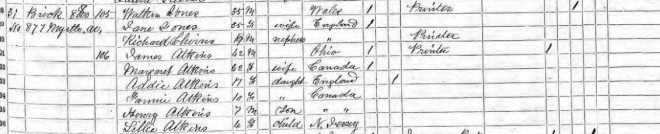 31 Brick 800 105 Watkin Jones 35 M Wales 1 Printer
No 877 Myrtle av, Jane Jones 35 F wife England 1
Richard 19 M nephew " Printer
106 James Atkins 42 M Ohio 1 Printer 1
Margaret Atkins 42 F wife Canada 1
Addie Atkins 17 F daught England 1
Fannie Atkins 10 F " Canada
Henry Atkins 7 M Son " "
Lillie Atkins 4 F child N. Jersey